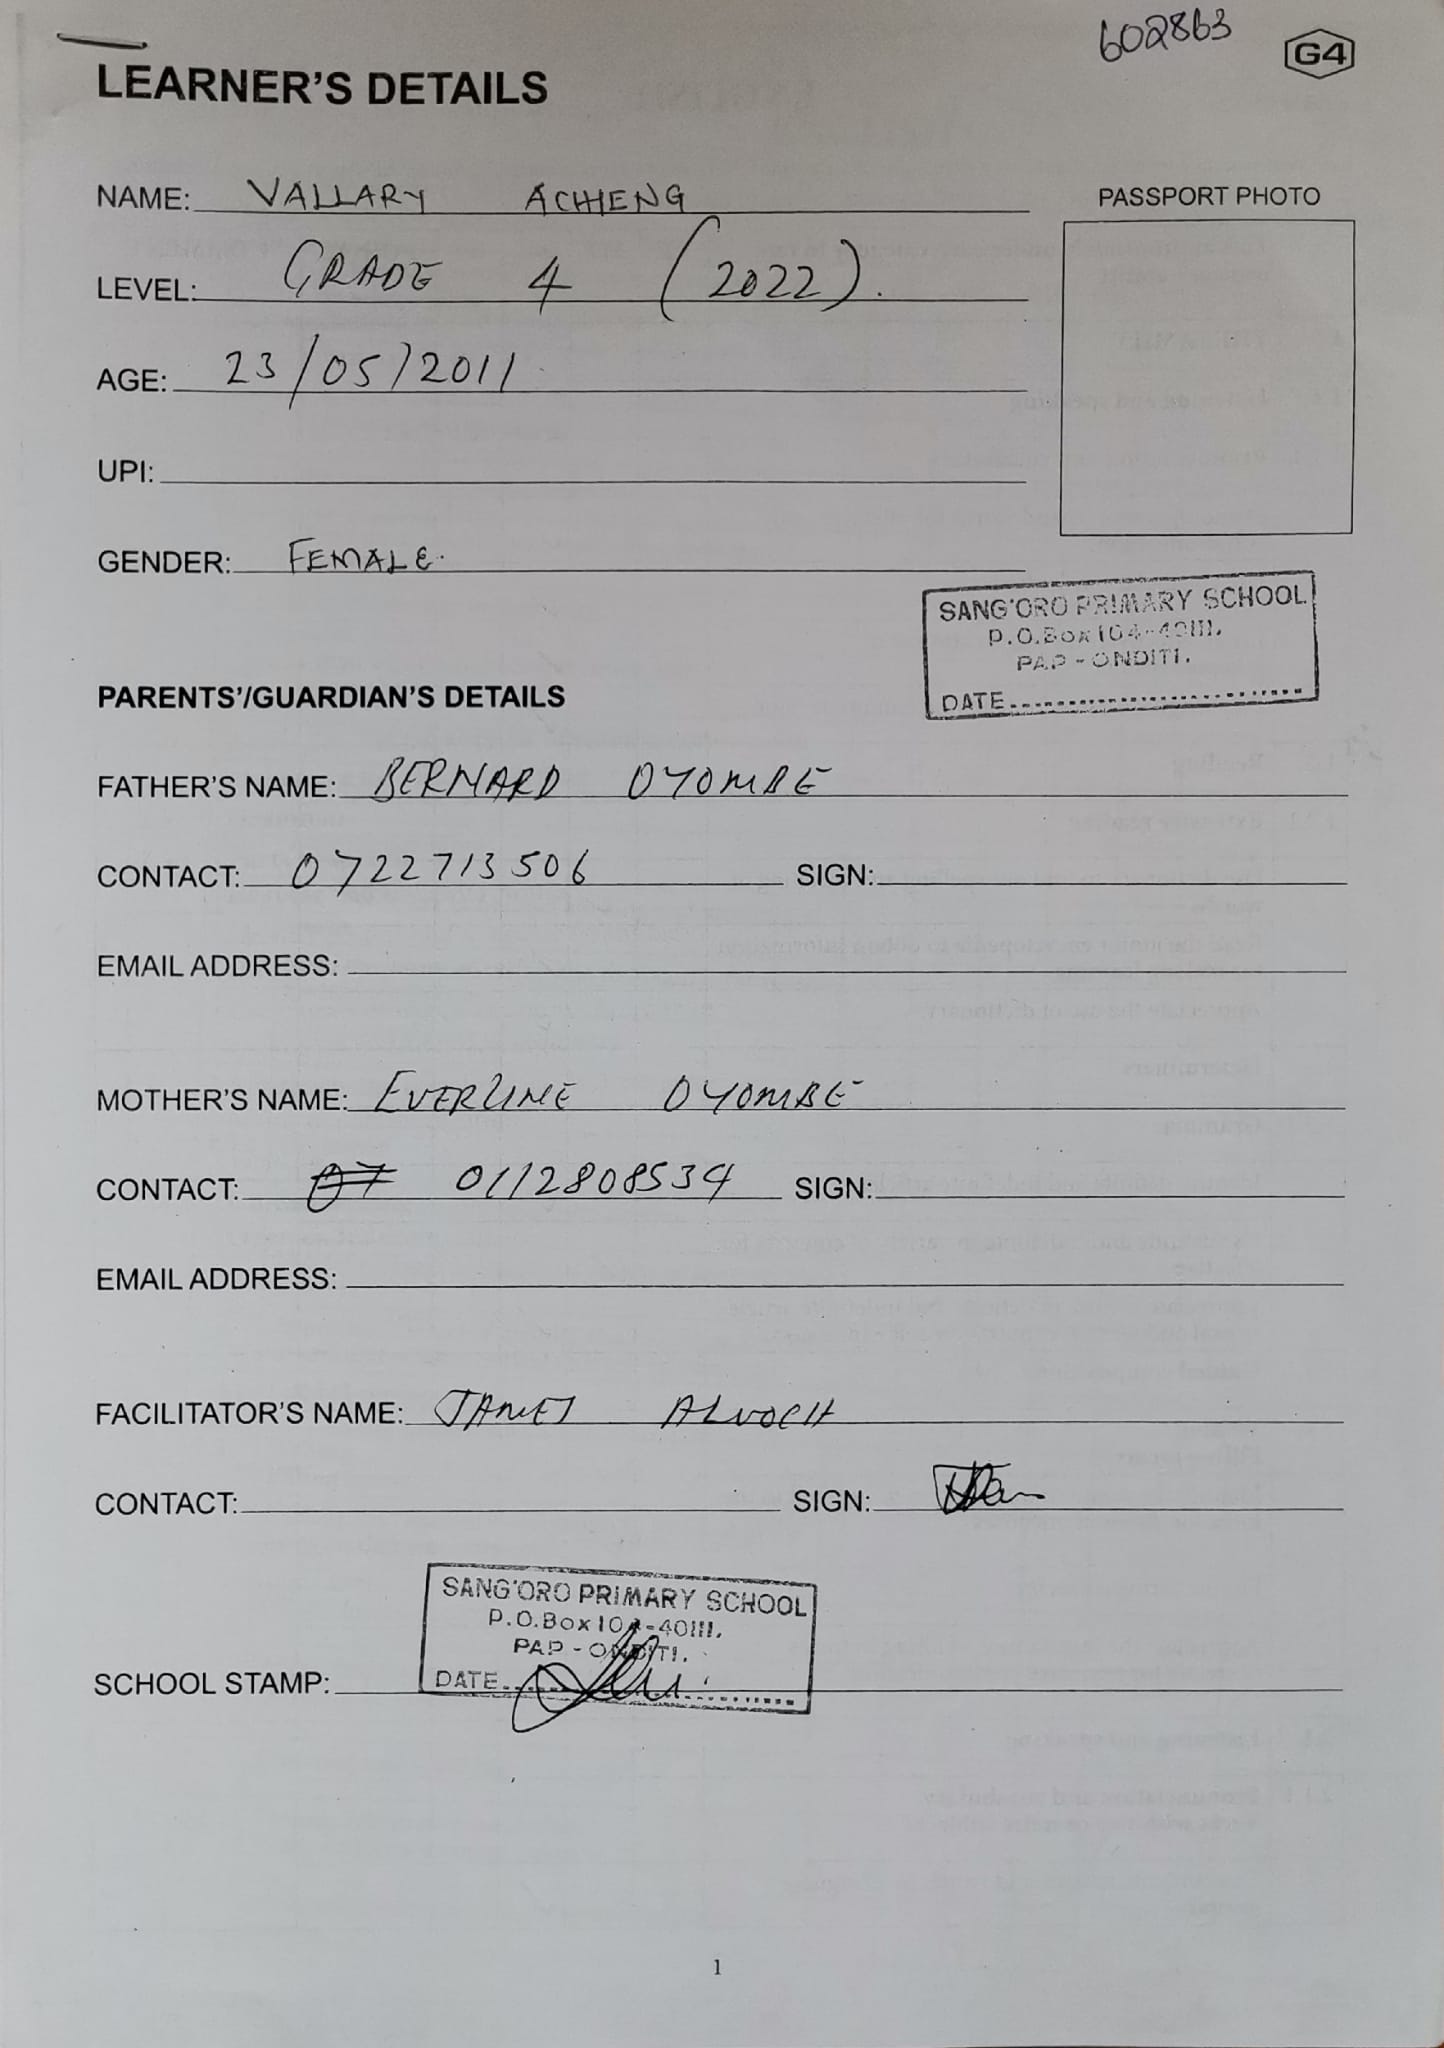 602863
G4
LEARNER'S DETAILS
NAME: VALLARY ACHIENG
PASSPORT PHOTO
LEVEL: GRADE 4 (2022).
AGE: 23/05/2011
UPI:
GENDER: FEMALE.
SANG'ORO PRIMARY SCHOOL
P.O.Box 104-40111,
PAP - ONDITI.
DATE
PARENTS'/GUARDIAN'S DETAILS
FATHER'S NAME: BERNARD OYOMBE
CONTACT: 0722713506 SIGN:
EMAIL ADDRESS:
MOTHER'S NAME: EVERLINE OYOMBE
CONTACT: 07 0112808534 SIGN:
EMAIL ADDRESS:
FACILITATOR'S NAME: ALUOCH
CONTACT: SIGN:
SANG'ORO PRIMARY SCHOOL
P.O.Box 104-40111,
PAP - ONDITI.
DATE
SCHOOL STAMP:
1